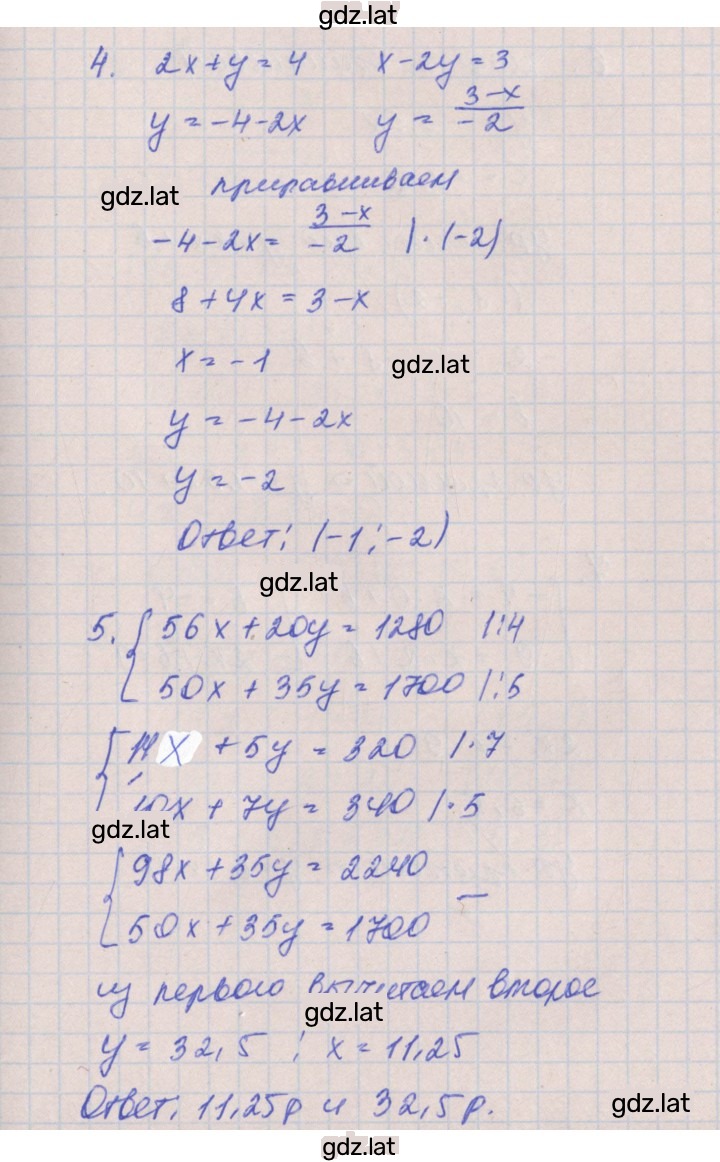 gdz.lat
4. 2x+y=4 x-2y=3
y=-4-2x y = (3-x)/(-2)
gdz.lat приравниваем
-4-2x= (3-x)/(-2) |·(-2)
8+4x=3-x
x=-1 gdz.lat
y=-4-2x
y=-2
Ответ: (-1;-2)
gdz.lat
5. { 56x+20y=1280 |:4
50x+35y=1700 |:5
{ 14x+5y=320 |·7
10x+7y=340 |·5
gdz.lat
{ 98x+35y=2240
50x+35y=1700 −
из первого вычитаем второе
gdz.lat
y=32,5; x=11,25
Ответ: 11,25р и 32,5р.
gdz.lat
gdz.lat